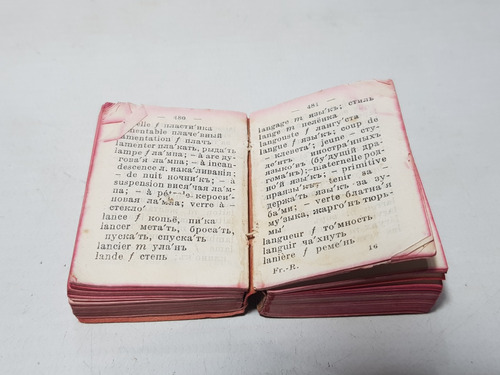 — 480 —
elle f пласти'нка
mentable плаче'вный
amentation f плачъ
lamenter пла'кать, рыда'ть
lampe f ла'мпа; — à arc ду-
гова'я ла'мпа; — à incan-
descence л. нака'ливанія;
— de nuit ночни'къ; — à
suspension вися'чая ла'м-
па; — à pé- кероси'-
новая ла'мпа; verre à
стекло'
lance f копьё, пи'ка
lancer мета'ть, броса'ть,
пуска'ть, спуска'ть
lancier m ула'нъ
lande f степь
— 481 —
langage m язы'къ; стиль
lange m пелёнка
langouste f лангу'ста
langue f язы'къ; coup de
— клевета'; jeune — сту-
де'нтъ
языко'въ иностра'нныхъ
(бу'дущій драг-
ома'нъ); — maternelle род-
но'й язы'къ; — primitive
праязы'къ; tenir sa —
держа'ть язы'къ за зу-
ба'ми; — verte блатна'я
му'зыка, жарго'нъ тюрь-
мы'
langueur f то'мность
languir ча'хнуть
lanière f реме'нь
Fr.-R. 16